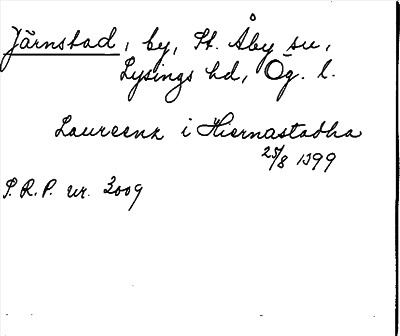 Järnstad, by, St. Åby sn,
Lysings hd, Ög. l.
Laurenz i Hiernastadha
25/8 1399
S.R.P. nr. 3009